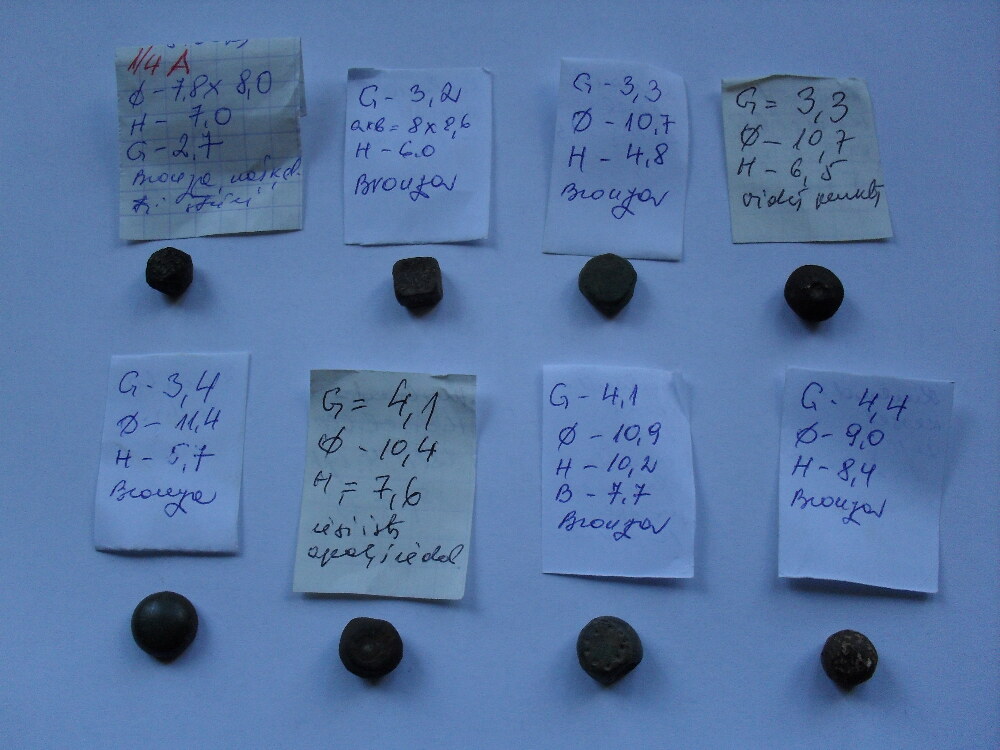 N4 A
Ø - 7,8 x 8,0
H - 7,0
G - 2,7
Bronza,
G - 3,2
8 x 8,6
H - 6.0
Bronza
G - 3,3
Ø - 10,7
H - 4,8
Bronza
G = 3,3
Ø - 10,7
H - 6,5
vidēj
G - 3,4
Ø - 11,4
H - 5,7
Bronza
G = 4,1
Ø - 10,4
H = 7,6
G - 4,1
Ø - 10,9
H - 10,2
B - 7,7
Bronza
G - 4,4
Ø - 9,0
H - 8,4
Bronza